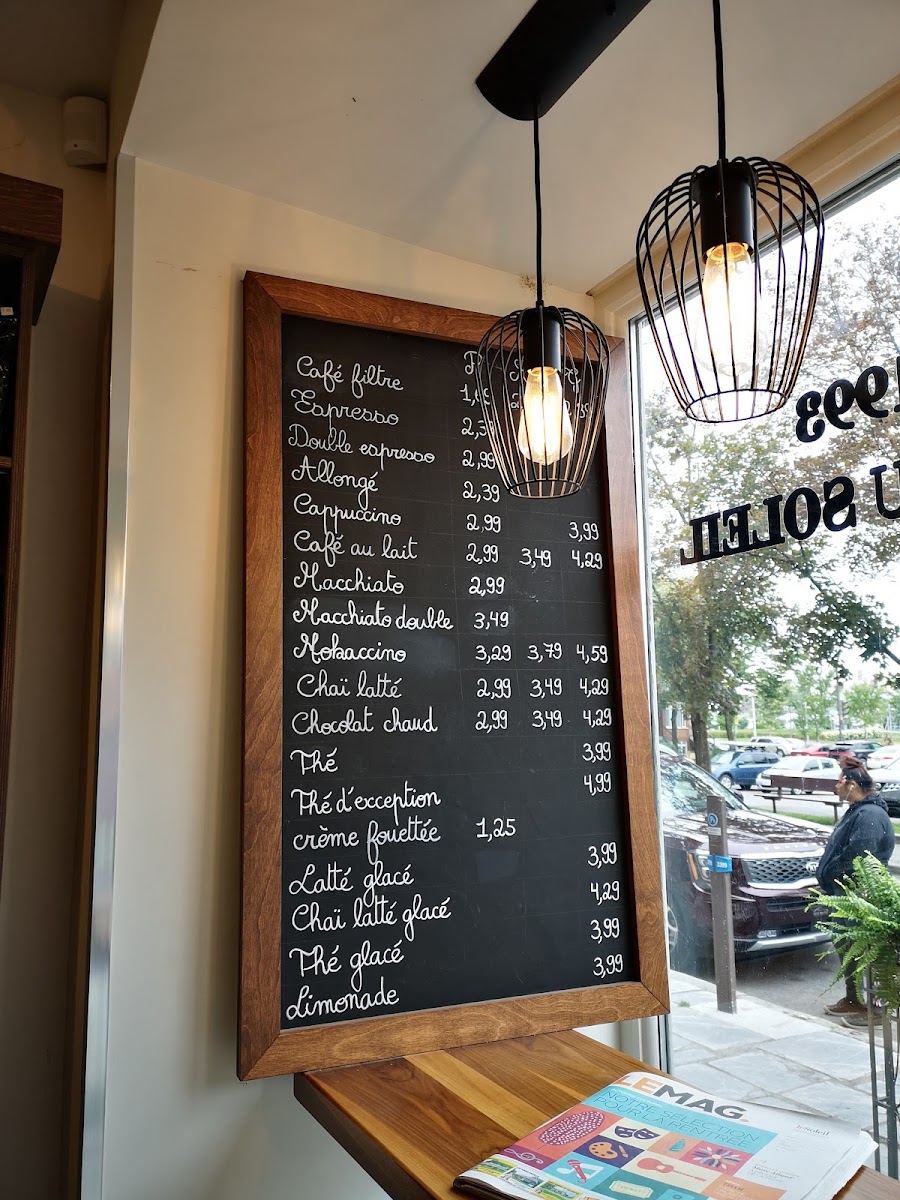 Café filtre
Espresso
Double espresso 2,99
Allongé 2,39
Cappuccino 2,99 3,99
Café au lait 2,99 3,49 4,29
Macchiato 2,99
Macchiato double 3,49
Mokaccino 3,29 3,79 4,59
Chaï latté 2,99 3,49 4,29
Chocolat chaud 2,99 3,49 4,29
Thé 3,99
Thé d'exception 4,99
crème fouettée 1,25
Latté glacé 3,99
Chaï latté glacé 4,29
Thé glacé 3,99
Limonade 3,99
1993
U SOLEIL
LEMAG.
NOTRE SÉLECTION
POUR LA RENTRÉE
leSoleil